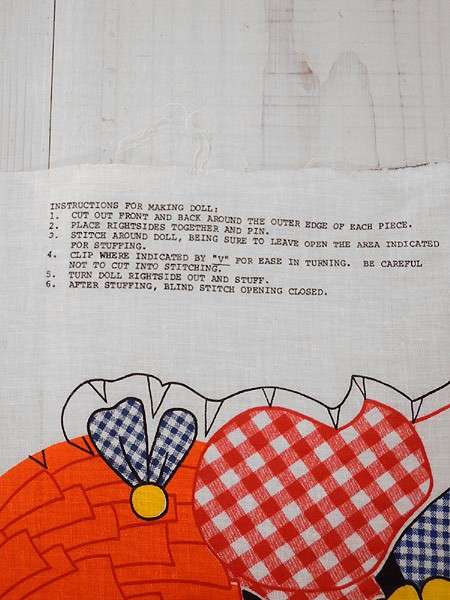 INSTRUCTIONS FOR MAKING DOLL:
1. CUT OUT FRONT AND BACK AROUND THE OUTER EDGE OF EACH PIECE.
2. PLACE RIGHTSIDES TOGETHER AND PIN.
3. STITCH AROUND DOLL, BEING SURE TO LEAVE OPEN THE AREA INDICATED
FOR STUFFING.
4. CLIP WHERE INDICATED BY "V" FOR EASE IN TURNING. BE CAREFUL
NOT TO CUT INTO STITCHING.
5. TURN DOLL RIGHTSIDE OUT AND STUFF.
6. AFTER STUFFING, BLIND STITCH OPENING CLOSED.